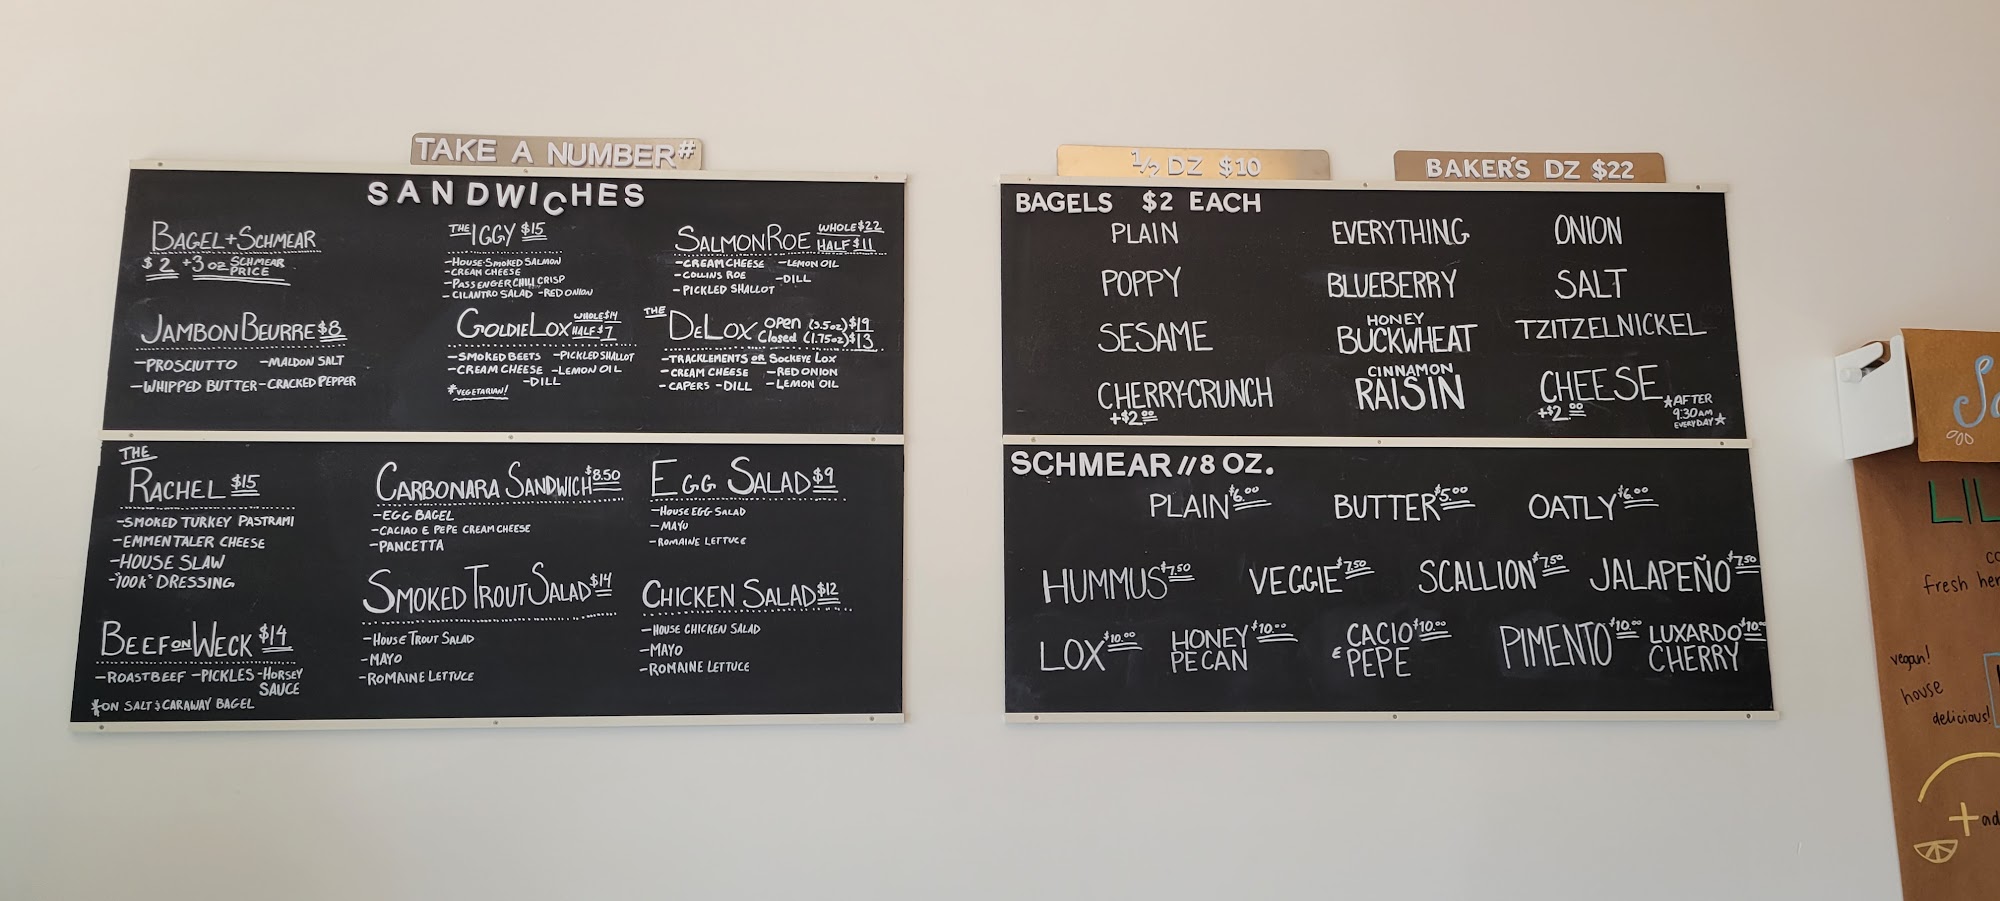 TAKE A NUMBER#
SANDWICHES
BAGEL+SCHMEAR
$2 +3 OZ SCHMEAR PRICE
THE IGGY $15
-HOUSE-SMOKED SALMON
-CREAM CHEESE
-PASSENGER CHILI CRISP
-CILANTRO SALAD -RED ONION
SALMON ROE WHOLE $22 HALF $11
-CREAM CHEESE -LEMON OIL
-COLLINS ROE -DILL
-PICKLED SHALLOT
JAMBON BEURRE $8
-PROSCIUTTO -MALDON SALT
-WHIPPED BUTTER -CRACKED PEPPER
GOLDIE LOX WHOLE $14 HALF $7
-SMOKED BEETS -PICKLED SHALLOT
-CREAM CHEESE -LEMON OIL
-DILL
*VEGETARIAN!
THE DELOX OPEN (3.5oz) $19
Closed (1.75oz) $13
-TRACKLEMENTS OR SOCKEYE LOX
-CREAM CHEESE -RED ONION
-CAPERS -DILL -LEMON OIL
THE
RACHEL $15
-SMOKED TURKEY PASTRAMI
-EMMENTALER CHEESE
-HOUSE SLAW
-"100K" DRESSING
CARBONARA SANDWICH $8.50
-EGG BAGEL
-CACIAO E PEPE CREAM CHEESE
-PANCETTA
EGG SALAD $9
-HOUSE EGG SALAD
-MAYO
-ROMAINE LETTUCE
BEEF ON WECK $14
-ROAST BEEF -PICKLES -HORSEY SAUCE
*ON SALT & CARAWAY BAGEL
SMOKED TROUT SALAD $14
-HOUSE TROUT SALAD
-MAYO
-ROMAINE LETTUCE
CHICKEN SALAD $12
-HOUSE CHICKEN SALAD
-MAYO
-ROMAINE LETTUCE
1/2 DZ $10
BAKER'S DZ $22
BAGELS $2 EACH
PLAIN EVERYTHING ONION
POPPY BLUEBERRY SALT
SESAME HONEY BUCKWHEAT TZITZELNICKEL
CHERRY-CRUNCH +$2.00 CINNAMON RAISIN CHEESE +$2.00 *AFTER 9:30AM EVERYDAY*
SCHMEAR // 8 OZ.
PLAIN $6.00 BUTTER $5.00 OATLY $6.00
HUMMUS $7.50 VEGGIE $7.50 SCALLION $7.50 JALAPEÑO $7.50
LOX $10.00 HONEY PECAN $10.00 CACIO E PEPE $10.00 PIMENTO $10.00 LUXARDO CHERRY $10.00
LIL
fresh her
vegan!
house
delicious!
+ad